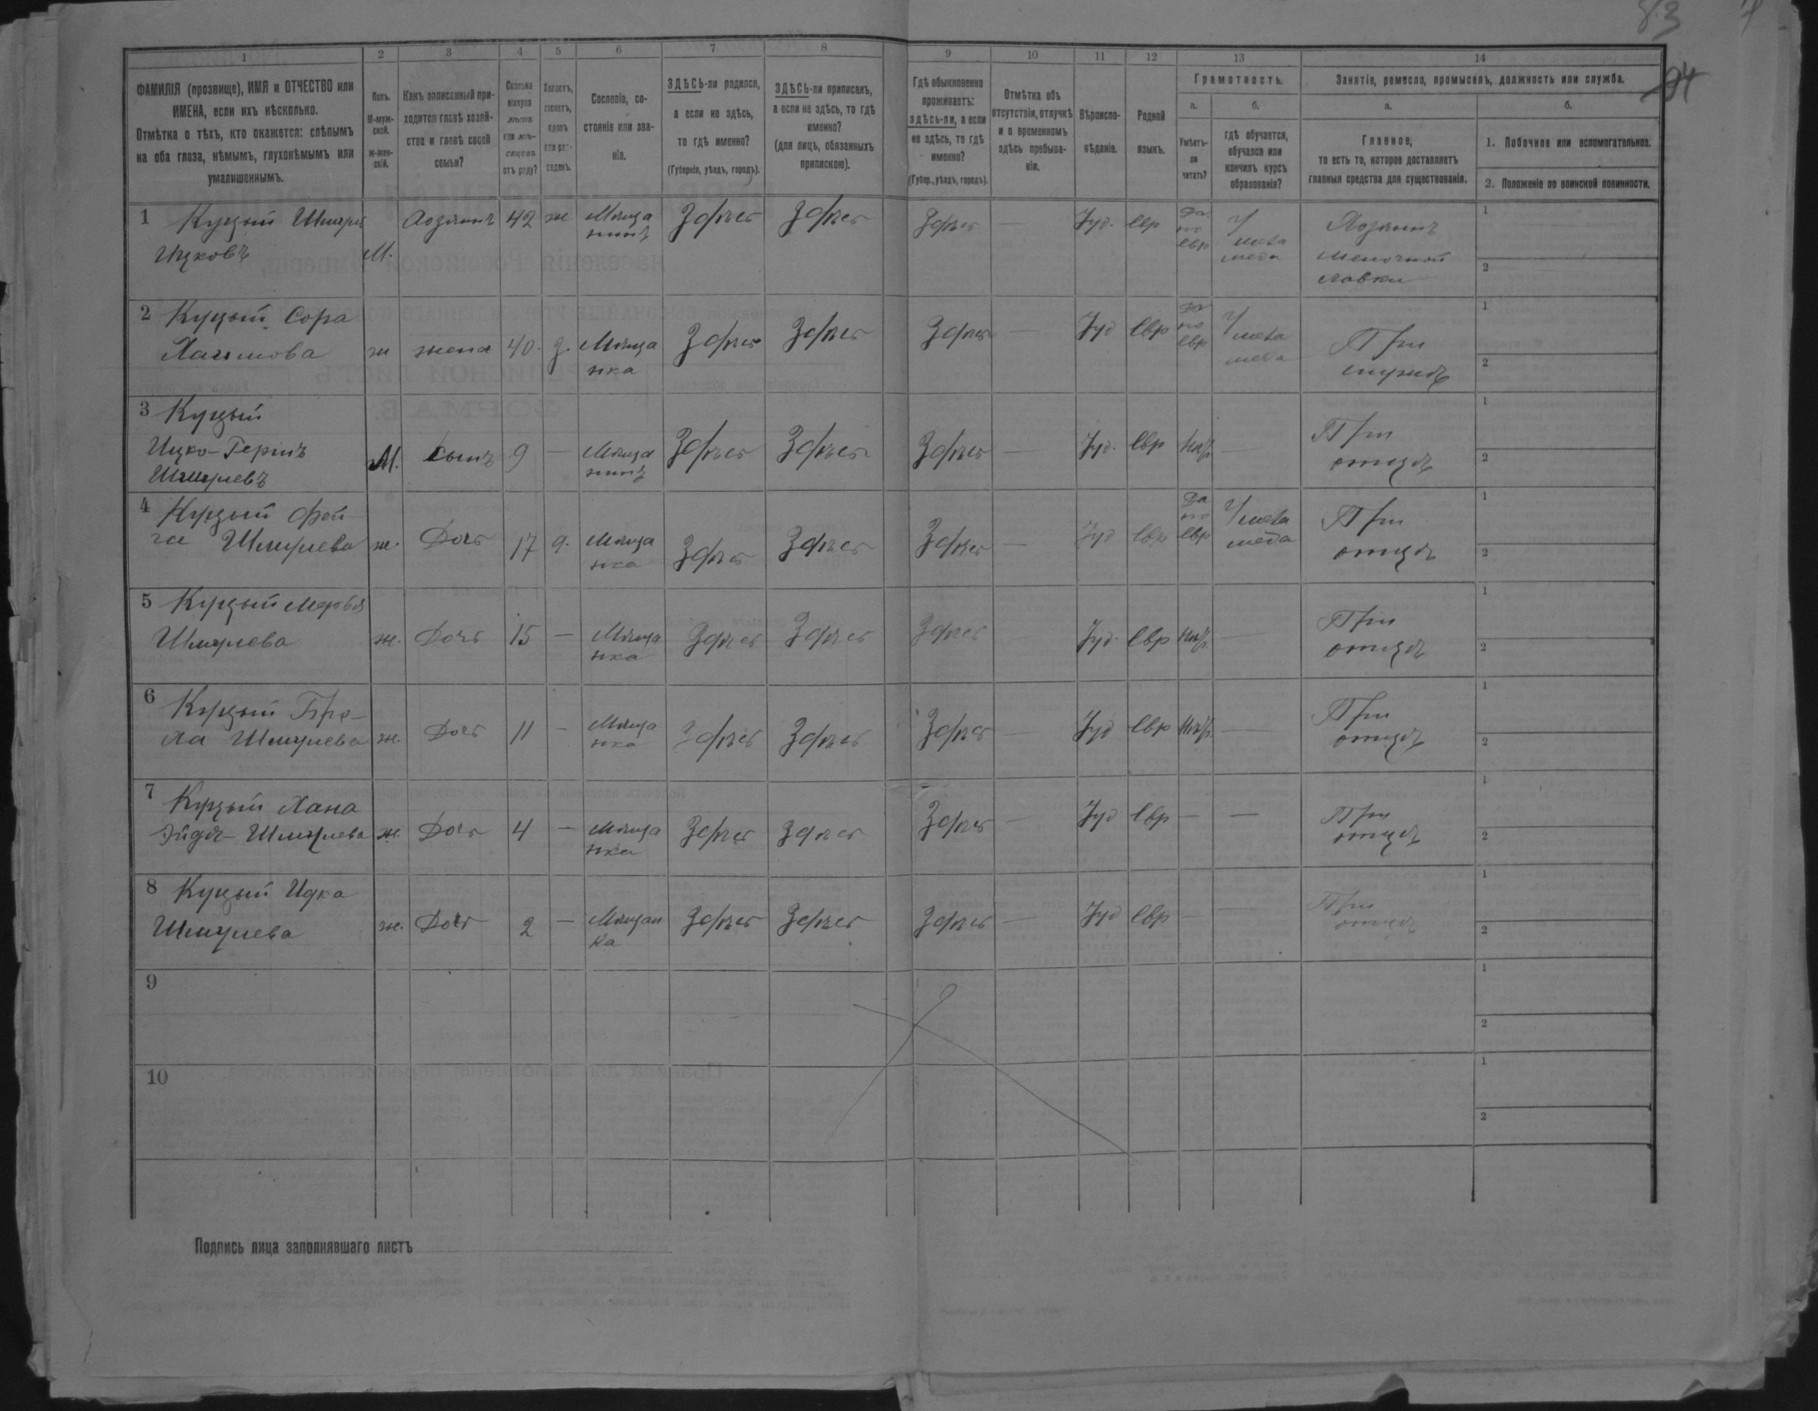 83
94
1 2 3 4 5 6 7 8 9 10 11 12 13 14
ФАМИЛІЯ (прозвище), ИМЯ и ОТЧЕСТВО или
ИМЕНА, если ихъ нѣсколько.
Отмѣтка о тѣхъ, кто окажется: слѣпымъ
на оба глаза, нѣмымъ, глухонѣмымъ или
умалишеннымъ.
Полъ.
М-муж-
ской.
ж-жен-
скій.
Какъ записанный при-
ходится главѣ хозяй-
ства и главѣ своей
семьи?
Сколько
минуло
лѣтъ
или мѣ-
сяцевъ
отъ роду?
Холостъ,
женатъ,
вдовъ
или раз-
веденъ.
Сословіе, со-
стояніе или зва-
ніе.
ЗДѢСЬ-ли родился,
а если не здѣсь,
то гдѣ именно?
(Губернія, уѣздъ, городъ).
ЗДѢСЬ-ли приписанъ,
а если не здѣсь, то гдѣ
именно?
(для лицъ, обязанныхъ
припискою).
Гдѣ обыкновенно
проживаетъ:
здѣсь-ли, а если
не здѣсь, то гдѣ
именно?
(Губер., уѣздъ, городъ).
Отмѣтка объ
отсутствіи, отлучкѣ
и о временномъ
здѣсь пребыва-
ніи.
Вѣроиспо-
вѣданіе.
Родной
языкъ.
Грамотность.
а.
Умѣетъ-
ли
читать?
б.
гдѣ обучается,
обучался или
кончилъ курсъ
образованія?
Занятія, ремесло, промыселъ, должность или служба.
а.
Главное,
то есть то, которое доставляетъ
главныя средства для существованія.
б.
1. Побочное или вспомогательное.
2. Положеніе по воинской повинности.
1 Куцый Шмуль
Ицковъ М. Хозяинъ 42 ж Мѣща
нинъ Здѣсь Здѣсь Здѣсь — Іуд. евр Да
по
евр У
мела
меда Хозяинъ
мелочной
лавки 1
2
2 Куцый Сора
Хаимова ж жена 40. з. Мѣща
нка Здѣсь Здѣсь Здѣсь — Іуд евр Да
по
евр У
мела
меда При
мужѣ 1
2
3 Куцый
Ицко-Гершъ
Шмулевъ М. Сынъ 9 — Мѣща
нинъ Здѣсь Здѣсь Здѣсь — Іуд. евр Нѣт — При
отцѣ 1
2
4 Куцый Фей-
га Шмулева ж. Дочь 17 д. Мѣща
нка Здѣсь Здѣсь Здѣсь — Іуд евр Да
по
евр У мела
меда При
отцѣ 1
2
5 Куцый
Шмулева ж. Дочь 15 — Мѣща
нка Здѣсь Здѣсь Здѣсь Іуд. евр Нѣт — При
отцѣ 1
2
6 Куцый Бро-
ха Шмулева ж. Дочь 11 — Мѣща
нка Здѣсь Здѣсь Здѣсь — Іуд евр Нѣт — При
отцѣ 1
2
7 Куцый Хана
Эйдя-Шмулева ж. Дочь 4 — Мѣща
нка Здѣсь Здѣсь Здѣсь — Іуд евр — — При
отцѣ 1
2
8 Куцый Идка
Шмулева ж. Дочь 2 — Мѣщан
ка Здѣсь Здѣсь Здѣсь — Іуд евр — — При
отцѣ 1
2
9 1
2
10 1
2
Подпись лица заполнявшаго листъ